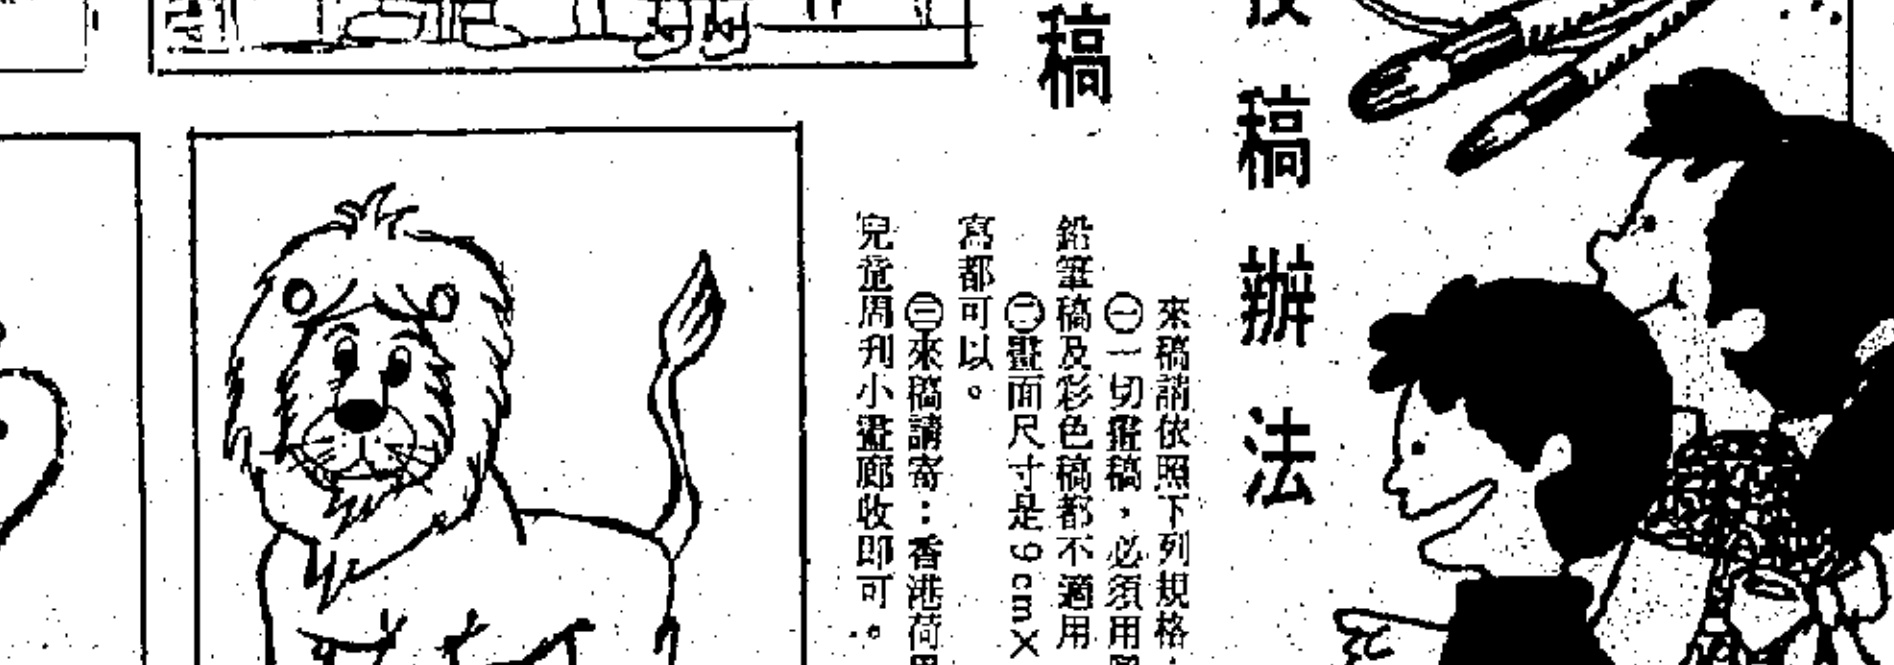 稿辦法
稿
來稿請依照下列規格
㊀一切畫稿，必須用
鉛筆稿及彩色稿都不適用
㊁畫面尺寸是9cm×
寫都可以。
㊂來稿請寄：香港荷
兒童周刋小畫廊收即可。